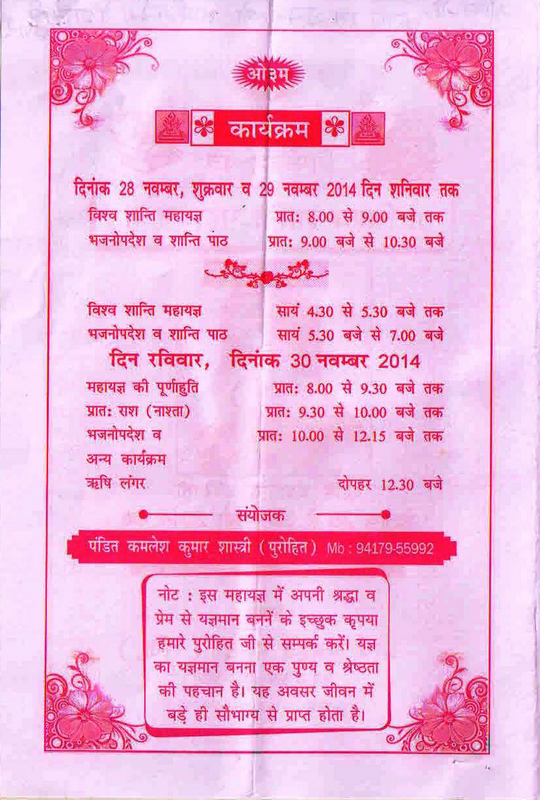 ओ३म
कार्यक्रम
दिनांक 28 नवम्बर, शुक्रवार व 29 नवम्बर 2014 दिन शनिवार तक
विश्व शान्ति महायज्ञ प्रात: 8.00 से 9.00 बजे तक
भजनोपदेश व शान्ति पाठ प्रात: 9.00 बजे से 10.30 बजे
विश्व शान्ति महायज्ञ सायं 4.30 से 5.30 बजे तक
भजनोपदेश व शान्ति पाठ सायं 5.30 बजे से 7.00 बजे
दिन रविवार, दिनांक 30 नवम्बर 2014
महायज्ञ की पूर्णाहुति प्रात: 8.00 से 9.30 बजे तक
प्रात: राश (नाश्ता) प्रात: 9.30 से 10.00 बजे तक
भजनोपदेश व प्रात: 10.00 से 12.15 बजे तक
अन्य कार्यक्रम
ऋषि लंगर दोपहर 12.30 बजे
संयोजक
पंडित कमलेश कुमार शास्त्री (पुरोहित) Mb : 94179-55992
नोट : इस महायज्ञ में अपनी श्रद्धा व
प्रेम से यज्ञमान बननें के इच्छुक कृपया
हमारे पुरोहित जी से सम्पर्क करें। यज्ञ
का यज्ञमान बनना एक पुण्य व श्रेष्ठता
की पहचान है। यह अवसर जीवन में
बड़े ही सौभाग्य से प्राप्त होता है।